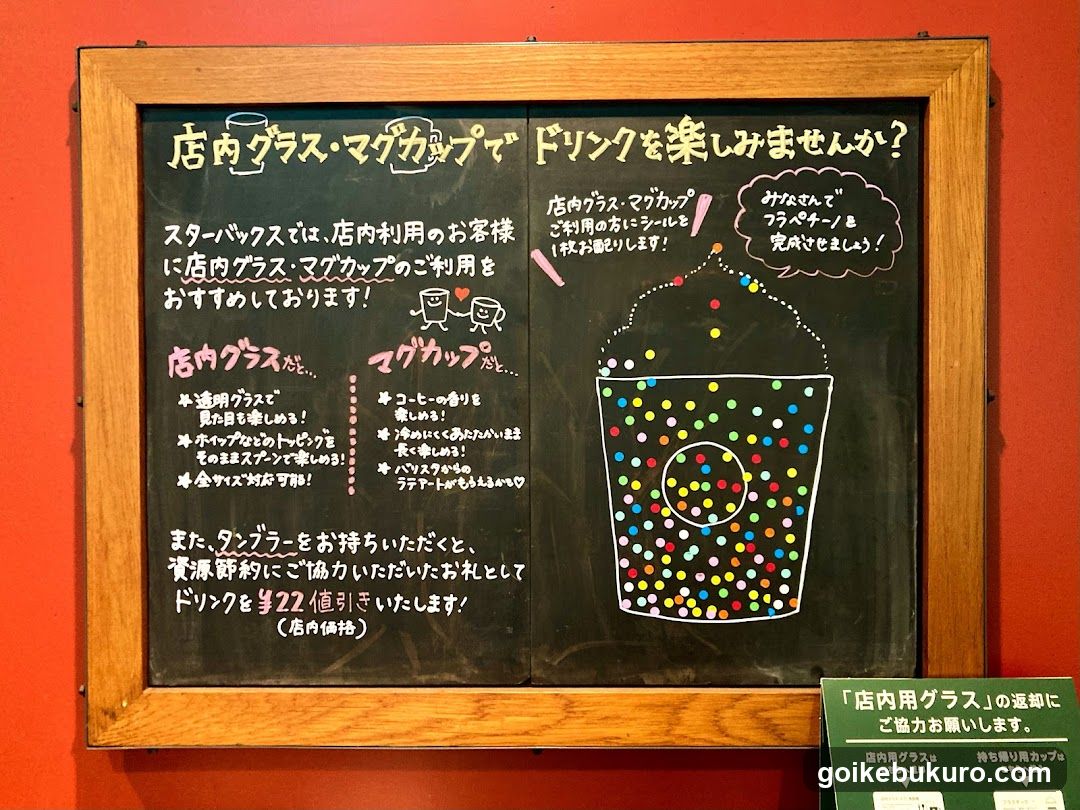 店内グラス・マグカップで ドリンクを楽しみませんか?
スターバックスでは、店内利用のお客様
に店内グラス・マグカップのご利用を
おすすめしております!
店内グラスだと...
★透明グラスで
見た目も楽しめる!
★ホイップなどのトッピングを
そのままスプーンで楽しめる!
★全サイズ対応可能!
マグカップだと...
★コーヒーの香りを
楽しめる!
★冷めにくくあたたかいまま
長く楽しめる!
★バリスタからの
ラテアートがもらえるかも♡
また、タンブラーをお持ちいただくと、
資源節約にご協力いただいたお礼として
ドリンクを¥22値引きいたします!
(店内価格)
店内グラス・マグカップ
ご利用の方にシールを
1枚お配りします!
みなさんで
フラペチーノを
完成させましょう!
「店内用グラス」の返却に
ご協力お願いします。
店内用グラスは
持ち帰り用カップは
goikebukuro.com